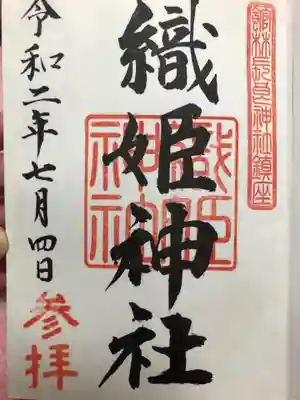 館林長良神社鎮座
織姫神社
織姫
神社
令和二年七月四日
参拝